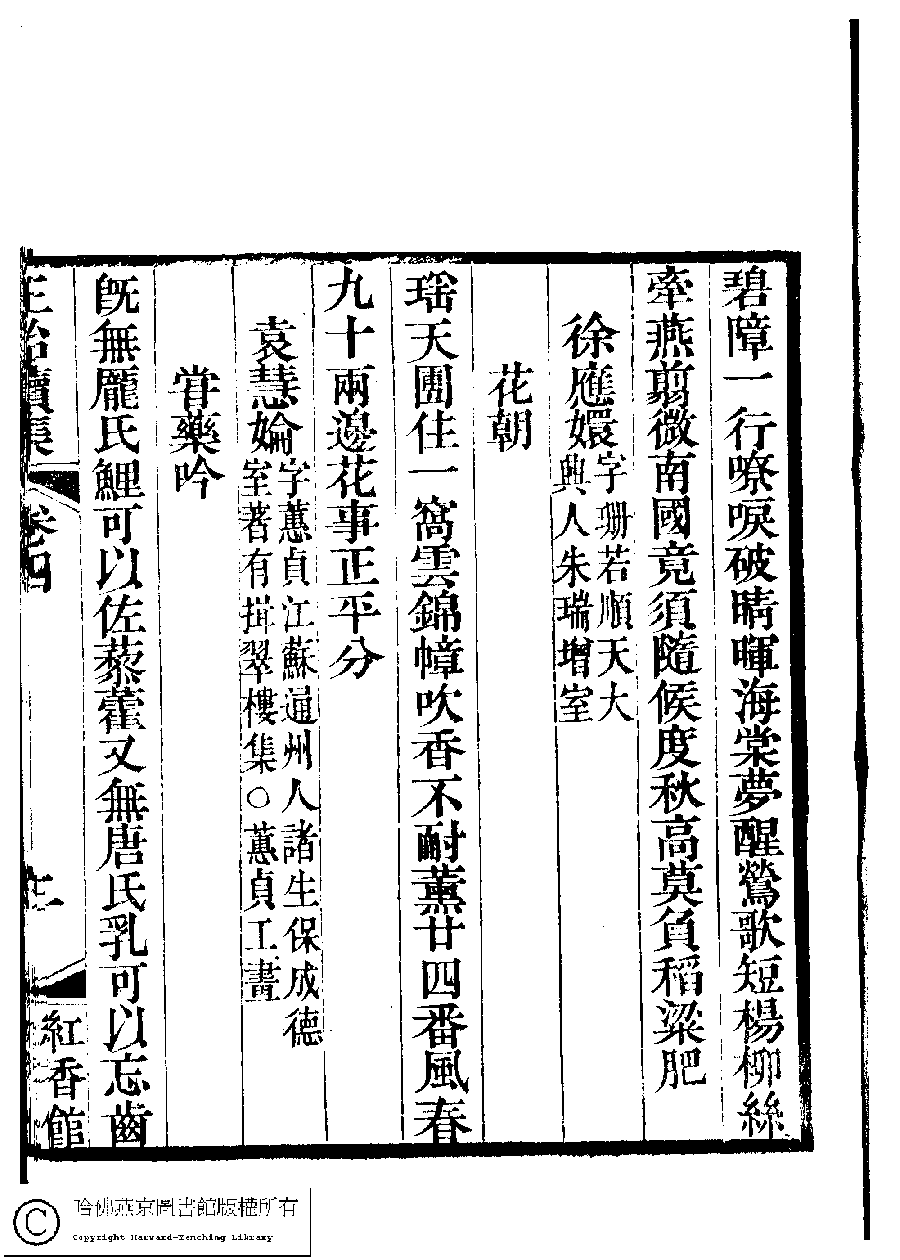 碧障一行嘹唳破晴暉海棠夢醒鶯歌短楊柳絲
牽燕翦微南國竟須隨候度秋高莫負稻粱肥
徐應嬽字珊若順天大
興人朱瑞增室
花朝
瑶天團住一窩雲錦幛吹香不耐薰廿四番風春
九十兩邊花事正平分
袁慧婨字蕙貞江蘇通州人諸生保成德
室著有揖翠樓集○蕙貞工書
甞藥吟
旣無龐氏鯉可以佐藜藿又無唐氏乳可以忘齒
卷四
紅香館
哈佛燕京圖書館版權所有
Copyright Harvard-Yenching Library